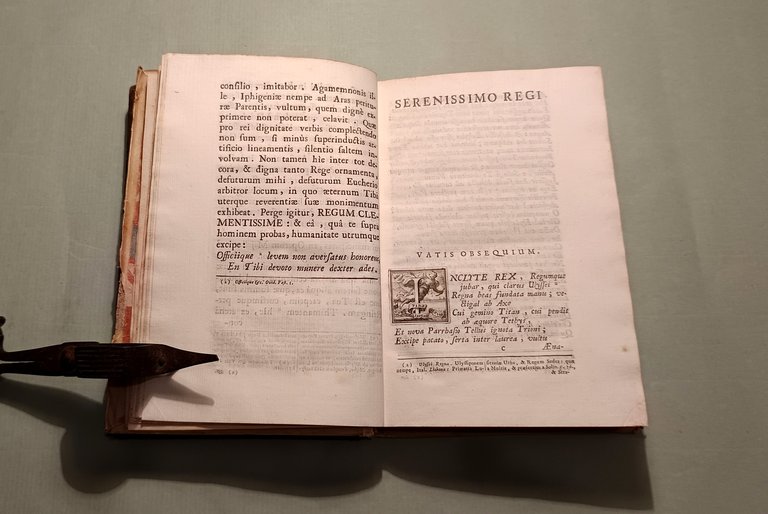 consilio , imitabor . Agamemnonis il-
le , Iphigeniæ nempe ad Aras peritu-
ræ Parentis, vultum, quem dignè ex-
primere non poterat, celavit . Quæ
pro rei dignitate verbis complectendo
non sum , si minùs superinductis ar-
tificio lineamentis, silentio saltem in-
volvam . Non tamen hîc inter tot de-
cora, & digna tanto Rege ornamenta,
defuturum mihi , defuturum Eucherio
arbitror locum, in quo æternum Tibi
uterque reverentiæ suæ monimentum
exhibeat . Perge igitur, REGUM CLE-
MENTISSIME : & eâ , quâ te supra
hominem probas, humanitate utrumque
excipe :
Officiique levem non aversatus honorem
En Tibi devoto munere dexter ades.
Officique &c. Ovid. Fast. 1.
SERENISSIMO REGI
VATIS OBSEQUIUM.
INCLYTE REX, Regumque
jubar, qui clarus Ulyssei
Regna beas fundata manu ; ve-
ctigal ab Axe
Cui gemino Titan , cui pendit
ab æquore Tethys,
Et nova Parrhasio Tellus ignota Trioni ;
Excipe pacato, serta inter laurea, vultu
c Æna-
(a) Ulyssei Regna. Ulyssiponem; &
& Stra-